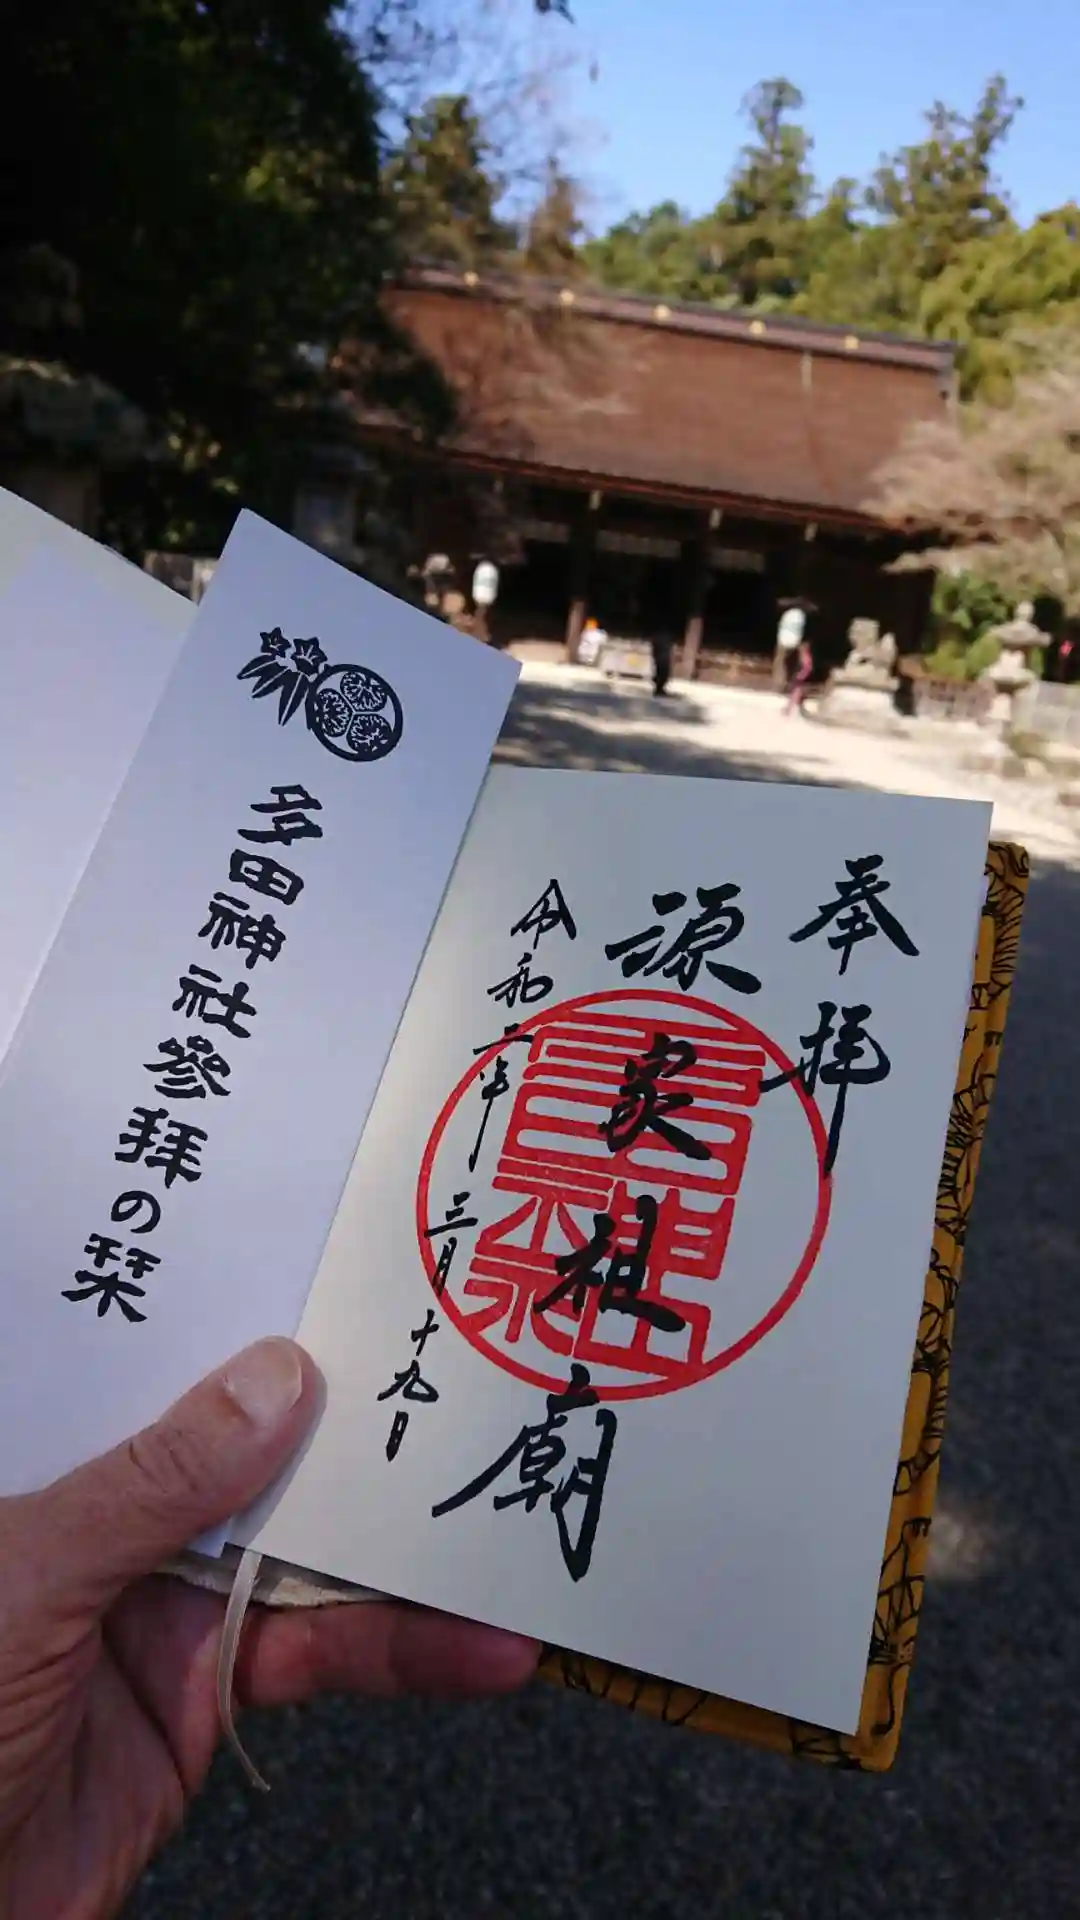 奉拝
源家祖廟
令和二年三月十九日
多田神社參拜の栞